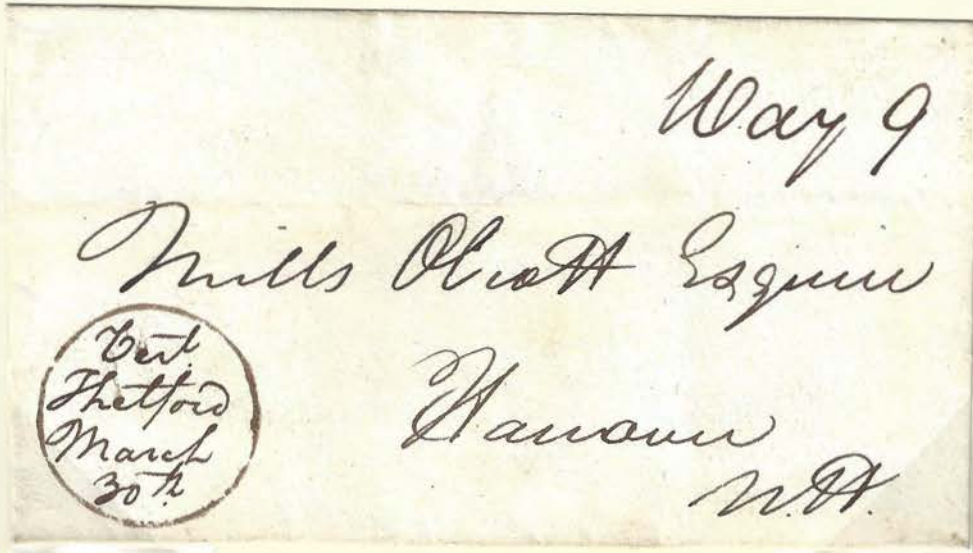 Way 9
Mills Olcott Esquire
Hanover
N.H.
Vert.
Thetford
March
30th